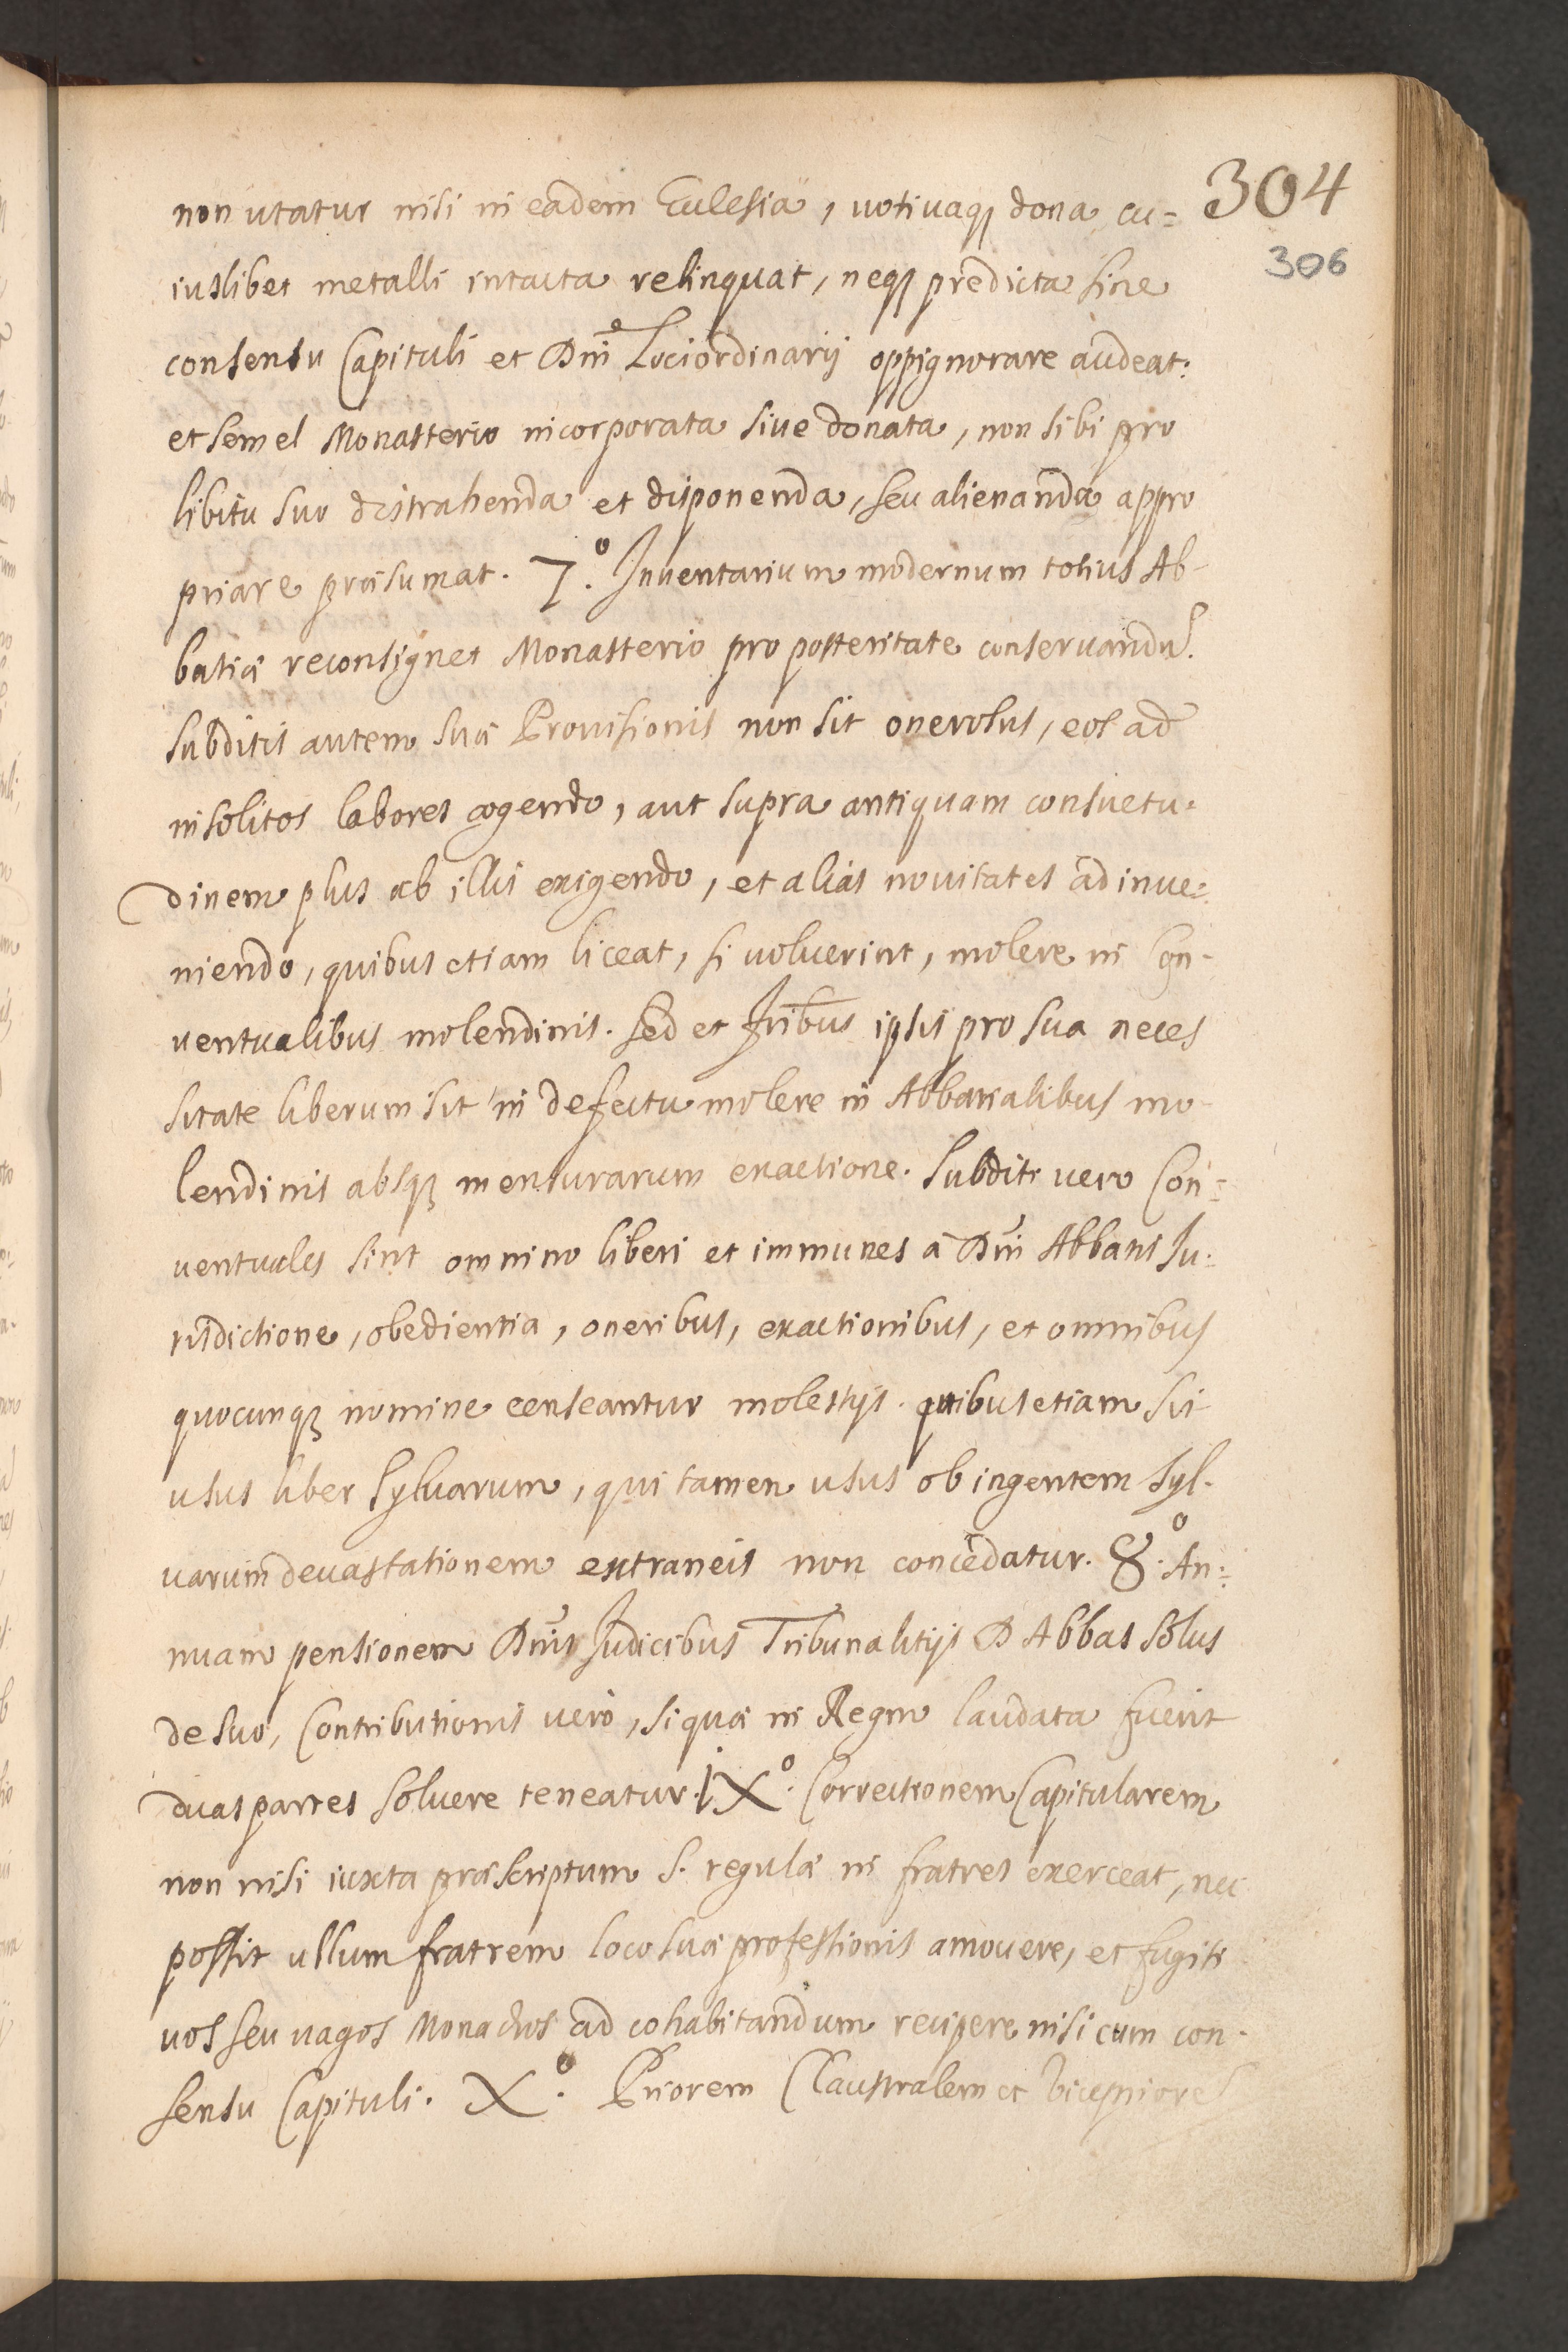 non utatur nisi in eadem Ecclesia, uotiuaq₃ dona cu= 304
306
iuslibet metalli intacta relinquat, neq₃ predicta sine
consensu Capituli et Dni Lociordinarij oppignorare audeat:
et semel Monasterio incorporata siue donata, non sibi pro
libitu suo distrahenda et disponenda, seu alienanda appro
priare præsumat. 7.º Inuentarium modernum totius Ab-
batiæ reconsignet Monasterio pro posteritate conseruandū.
Subditis autem suæ Prouisionis non sit onerosus, eos ad
insolitos labores cogendo, aut supra antiquam consuetu-
dinem plus ab illis exigendo, et alias nouitates adinue=
niendo, quibus etiam liceat, si uoluerint, molere in Con-
uentualibus molendinis. Sed et fribus ipsis pro sua neces
sitate liberum sit in defectu molere in Abbatialibus mo-
lendinis absq₃ mensurarum exactione. Subditi uero Con=
uentuales sint omnino liberi et immunes à Dni Abbatis Ju=
risdictione, obedientia, oneribus, exactionibus, et omnibus
quocunq₃ nomine censeantur molestijs. quibus etiam sit
usus liber Syluarum, qui tamen usus ob ingentem Syl-
uarum deuastationem extraneis non concedatur. 8.º An=
nuam pensionem Dnis Judicibus Tribunalitijs D Abbas solus
de suo, Contributionis uerò, si quæ in Regno laudata fuerit
duas partes soluere teneatur. IXº. Correctionem Capitularem
non nisi iuxta præscriptum S. regulæ in fratres exerceat, nec
possit ullum fratrem loco suæ professionis amouere, et fugiti
uos seu uagos Monachos ad cohabitandum recipere nisi cum con-
sensu Capituli. Xº. Priorem Claustralem et Vicepriores